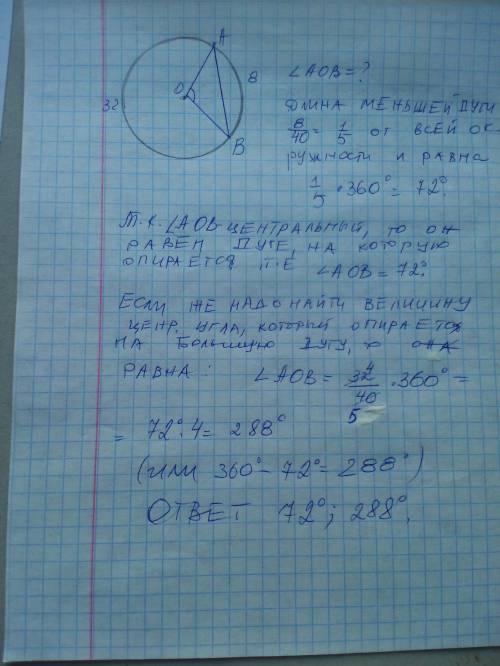 A
8
O
32
B
∠AOB=?
ДЛИНА МЕНЬШЕЙ ДУГИ
8/40 = 1/5 ОТ ВСЕЙ ОК
РУЖНОСТИ И РАВНА
1/5 · 360° = 72°.
Т.К. ∠AOB - ЦЕНТРАЛЬНЫЙ, ТО ОН
РАВЕН ДУГЕ, НА КОТОРУЮ
ОПИРАЕТСЯ Т.Е ∠AOB = 72°.
ЕСЛИ ЖЕ НАДО НАЙТИ ВЕЛИЧИНУ
ЦЕНТР. УГЛА, КОТОРЫЙ ОПИРАЕТСЯ
НА БОЛЬШУЮ ДУГУ, ТО ОНА
РАВНА: ∠AOB = 32/40 · 360° =
4
5
= 72°·4 = 288°
(ИЛИ 360° - 72° = 288°)
ОТВЕТ 72°; 288°.